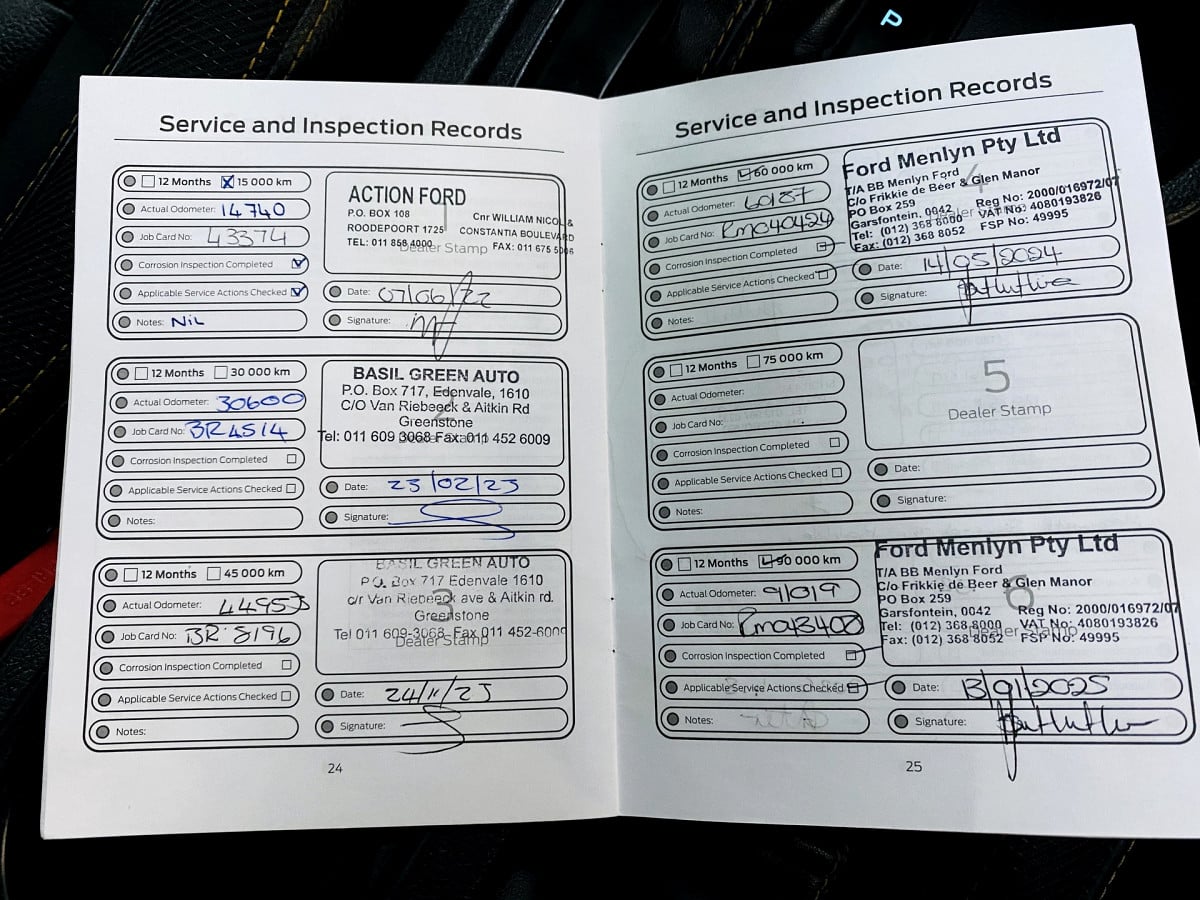 P
Service and Inspection Records
12 Months 15 000 km
Actual Odometer: 14740
Job Card No: 43374
Corrosion Inspection Completed
Applicable Service Actions Checked
Notes: Nil
ACTION FORD
P.O. BOX 108
ROODEPOORT 1725
TEL: 011 858 4000
Cnr WILLIAM NICOL &
CONSTANTIA BOULEVARD
FAX: 011 675
1
Dealer Stamp
Date: 07/06/22
Signature:
12 Months 30 000 km
Actual Odometer: 30600
Job Card No: BR4514
Corrosion Inspection Completed
Applicable Service Actions Checked
Notes:
BASIL GREEN AUTO
P.O. Box 717, Edenvale, 1610
C/O Van Riebeeck & Aitkin Rd
Greenstone
Tel: 011 609 3068 Fax: 011 452 6009
2
Date: 23/02/23
Signature:
12 Months 45 000 km
Actual Odometer: 44953
Job Card No: BR 8196
Corrosion Inspection Completed
Applicable Service Actions Checked
Notes:
BASIL GREEN AUTO
P.O. Box 717 Edenvale 1610
c/r Van Riebeeck ave & Aitkin rd.
Greenstone
Tel 011 609-3068 Fax 011 452-6009
3
Dealer Stamp
Date: 24/11/23
Signature:
24
Service and Inspection Records
12 Months 60 000 km
Actual Odometer: 60187
Job Card No: RM040424
Corrosion Inspection Completed
Applicable Service Actions Checked
Notes:
Ford Menlyn Pty Ltd
T/A BB Menlyn Ford
C/o Frikkie de Beer & Glen Manor
PO Box 259
Garsfontein, 0042 Reg No: 2000/016972/07
Tel: (012) 368 8000 VAT No: 4080193826
Fax: (012) 368 8052 FSP No: 49995
4
Dealer Stamp
Date: 14/05/2024
Signature:
12 Months 75 000 km
Actual Odometer:
Job Card No:
Corrosion Inspection Completed
Applicable Service Actions Checked
Notes:
5
Dealer Stamp
Date:
Signature:
12 Months 90 000 km
Actual Odometer: 91019
Job Card No: RM043408
Corrosion Inspection Completed
Applicable Service Actions Checked
Notes:
Ford Menlyn Pty Ltd
T/A BB Menlyn Ford
C/o Frikkie de Beer & Glen Manor
PO Box 259
Garsfontein, 0042 Reg No: 2000/016972/07
Tel: (012) 368 8000 VAT No: 4080193826
Fax: (012) 368 8052 FSP No: 49995
6
Dealer Stamp
Date: 13/01/2025
Signature:
25